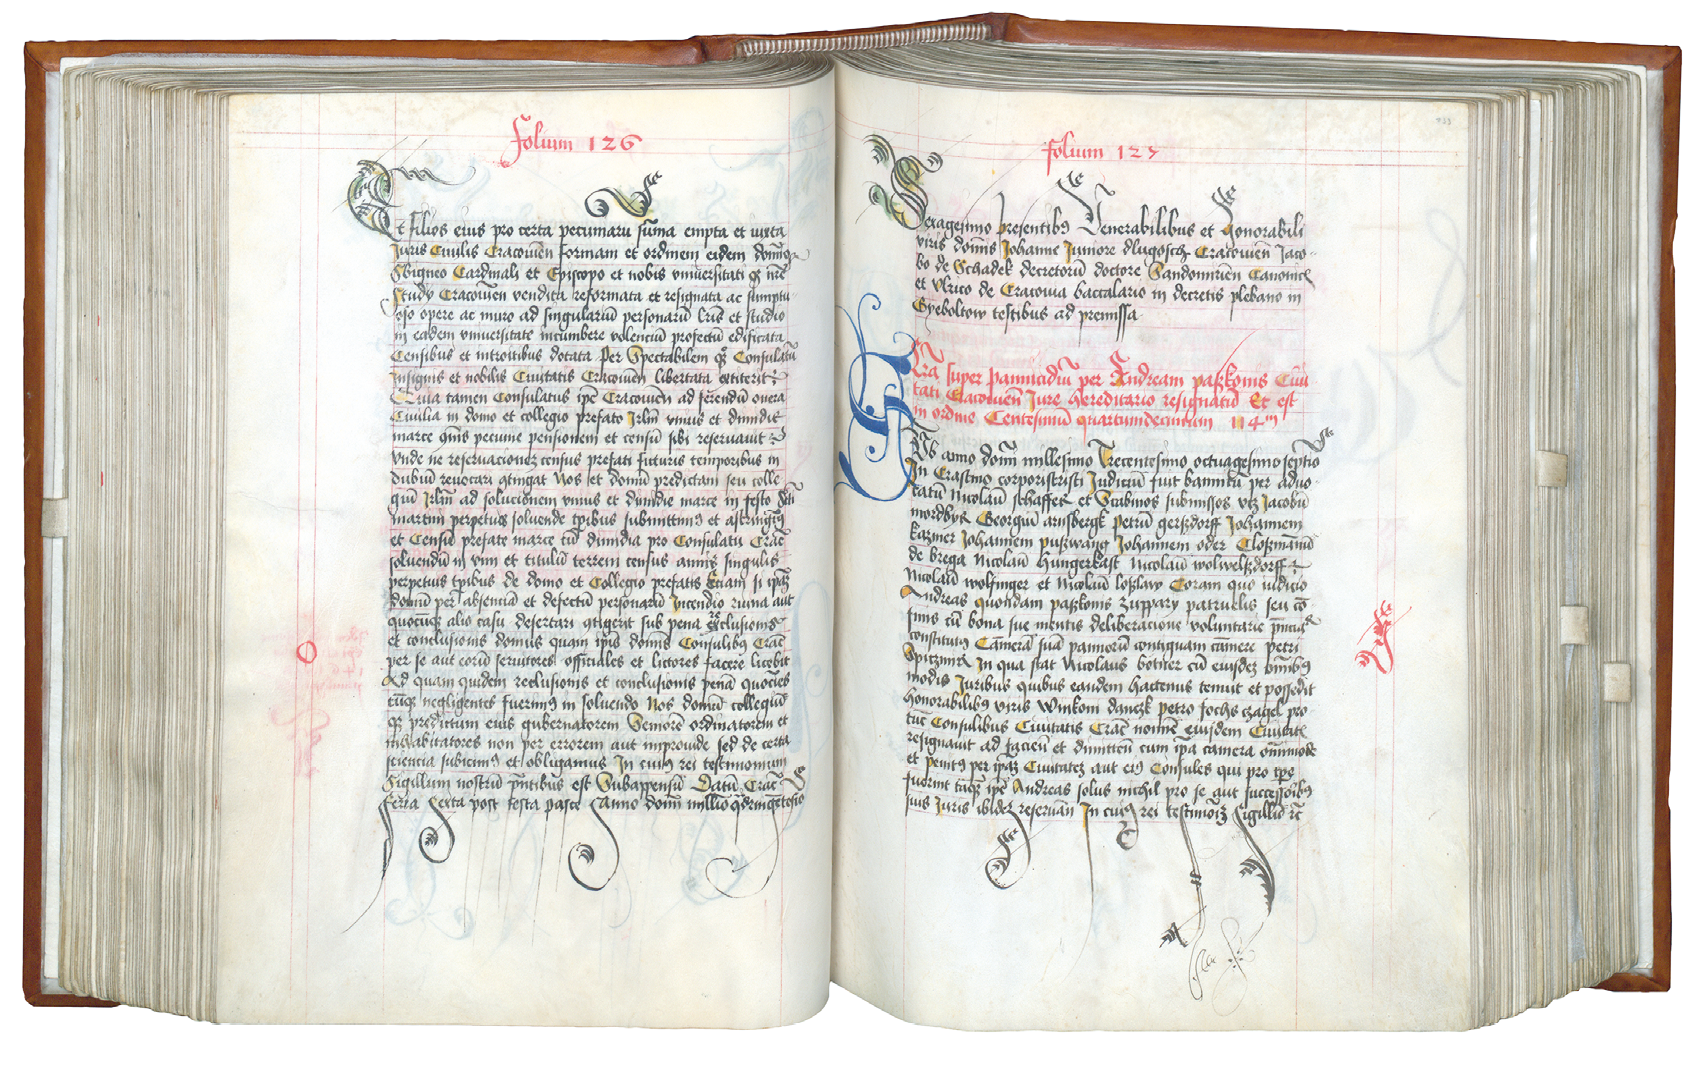 Folium 126
Et filios eius pro certa pecuniaru sūma empta et iuxta
Juris Ciuilis Cracouien̄ formam et ordinem eidem domino
Sbigneo Cardinali et Episcopo et nobis vniuersitati qꝫ nr̄e
Study Cracouien̄ vendita reformata et resignata ac sumptu
oso opere ac muro ad singulariū personarū lr̄is et studio
in eadem vniuersitate incumbere volenciū profectū edificata
Censibus et introitibus dotata Per Spectabilem qꝫ Consulatū
insignis et nobilis Ciuitatis Cracouien̄ libertata extiterit
Quia tamen Consulatus ip̄e Cracouien̄ ad ferendū onera
Ciuilia in domo et collegio prefato Jrl̄m vnius et dimidie
marce pecune pensionem et censū sibi reseruauit
Vnde ne reseruacionez census prefati futuris temporibus in
dubiū reuocari ꝯtingat Nos et domū predictam seu colle
giū Jrl̄m ad solucionem vnius et dimidie marce in festo sct̄i
martini perpetuis soluende tp̄ribus submittimꝰ et astringimꝰ
et Censū prefate marce cū dimidia pro Consulatu Crac̄
soluendū in vim et titulū terren̄ census annis singulis
perpetuis tp̄ribus de domo et Collegio prefatis Etiam si ip̄aꝫ
domū per absenciā et defectū personarū Jncendio ruina aut
quocūqꝫ alio casu desertari ꝯtigerit sub pena reclusionis
et conclusionis domus quam ip̄is domīs Consulibꝰ Crac̄
per se aut eorū seruitores officiales et lictores facere licebit
Ad quam quidem reclusionis et conclusionis penā quocies
cūqꝫ negligentes fuerimꝰ in soluendo Nos domū collegiū
qꝫ predictum euis gubernatorem Seniorē ordinatorem et
inhabitatores non per errorem aut improuide sed de certa
sciencia subicimꝰ et obligamus In cuiꝰ rei testimonium
Sigillum nostrū p̄ntibus est Subapensū Datū Crac̄
feria Sexta post festa pasce Anno domī millīo qͣdringētesīo
Folium 127
Sexagesimo presentibꝰ Venerabilibus et honorabili
viris domīs Johanne Juniore dlugosch Cracouien̄ Jaco
bo de Schadek decretorū doctore Sandomirien̄ Canonicis
et Vlrico de Cracouia baccalario in decretis plebano in
Gyeboltow testibus ad premissa
Lr̄a super pannicidiū per Andream paszkonis Ciui
tati Cracouien̄ Jure hereditario resignatū Et est
in ordine Centesimū quartumdecimum 114ᵐ
anno domī millesimo Trecentesimo octuagesimo septīo
In Crastino corporischristi Judiciū fuit bannitū per aduo
catū Nicolaū schaffer et Scabinos submissos vtz Jacobū
mordbyr Georgiū arnsbergk Petrū gerszdorff Johannem
kazmer Johannem puszwang Johannem oder Closzmānū
de brega Nicolaū hungerkast Nicolaū wolwelszdorff
Nicolaū wolfinger et Nicolaū loszlaw Coram quo iudicio
Andreas quondam paszkonis zuppary patruelis seu cō
finis cū bona sue mentis deliberacione voluntarie
constitutus Camerā suā pannorū contiguam camere petri
Spiczmir In qua stat Nicolaus botner cū eiusdez om̄ibꝰ
modis Juribus quibus eandem hactenus tenuit et possedit
honorabilibꝰ viris Winkoni danczk petro fochs czagel pro
tūc Consulibus Ciuitatis Crac̄ nomīe eiusdem Ciuitatis
resignauit ad facien̄ et dimitten̄ cum ip̄a camera om̄imode
et penitꝰ per ip̄aꝫ Ciuitatez aut eiꝰ Consules qui pro tp̄e
fuerint tāqꝫ ip̄e Andreas solus nichil pro se aut successoribꝰ
suis Juris ibidez reseruan̄ In cuiꝰ rei testimoiꝫ Sigillū rc̄